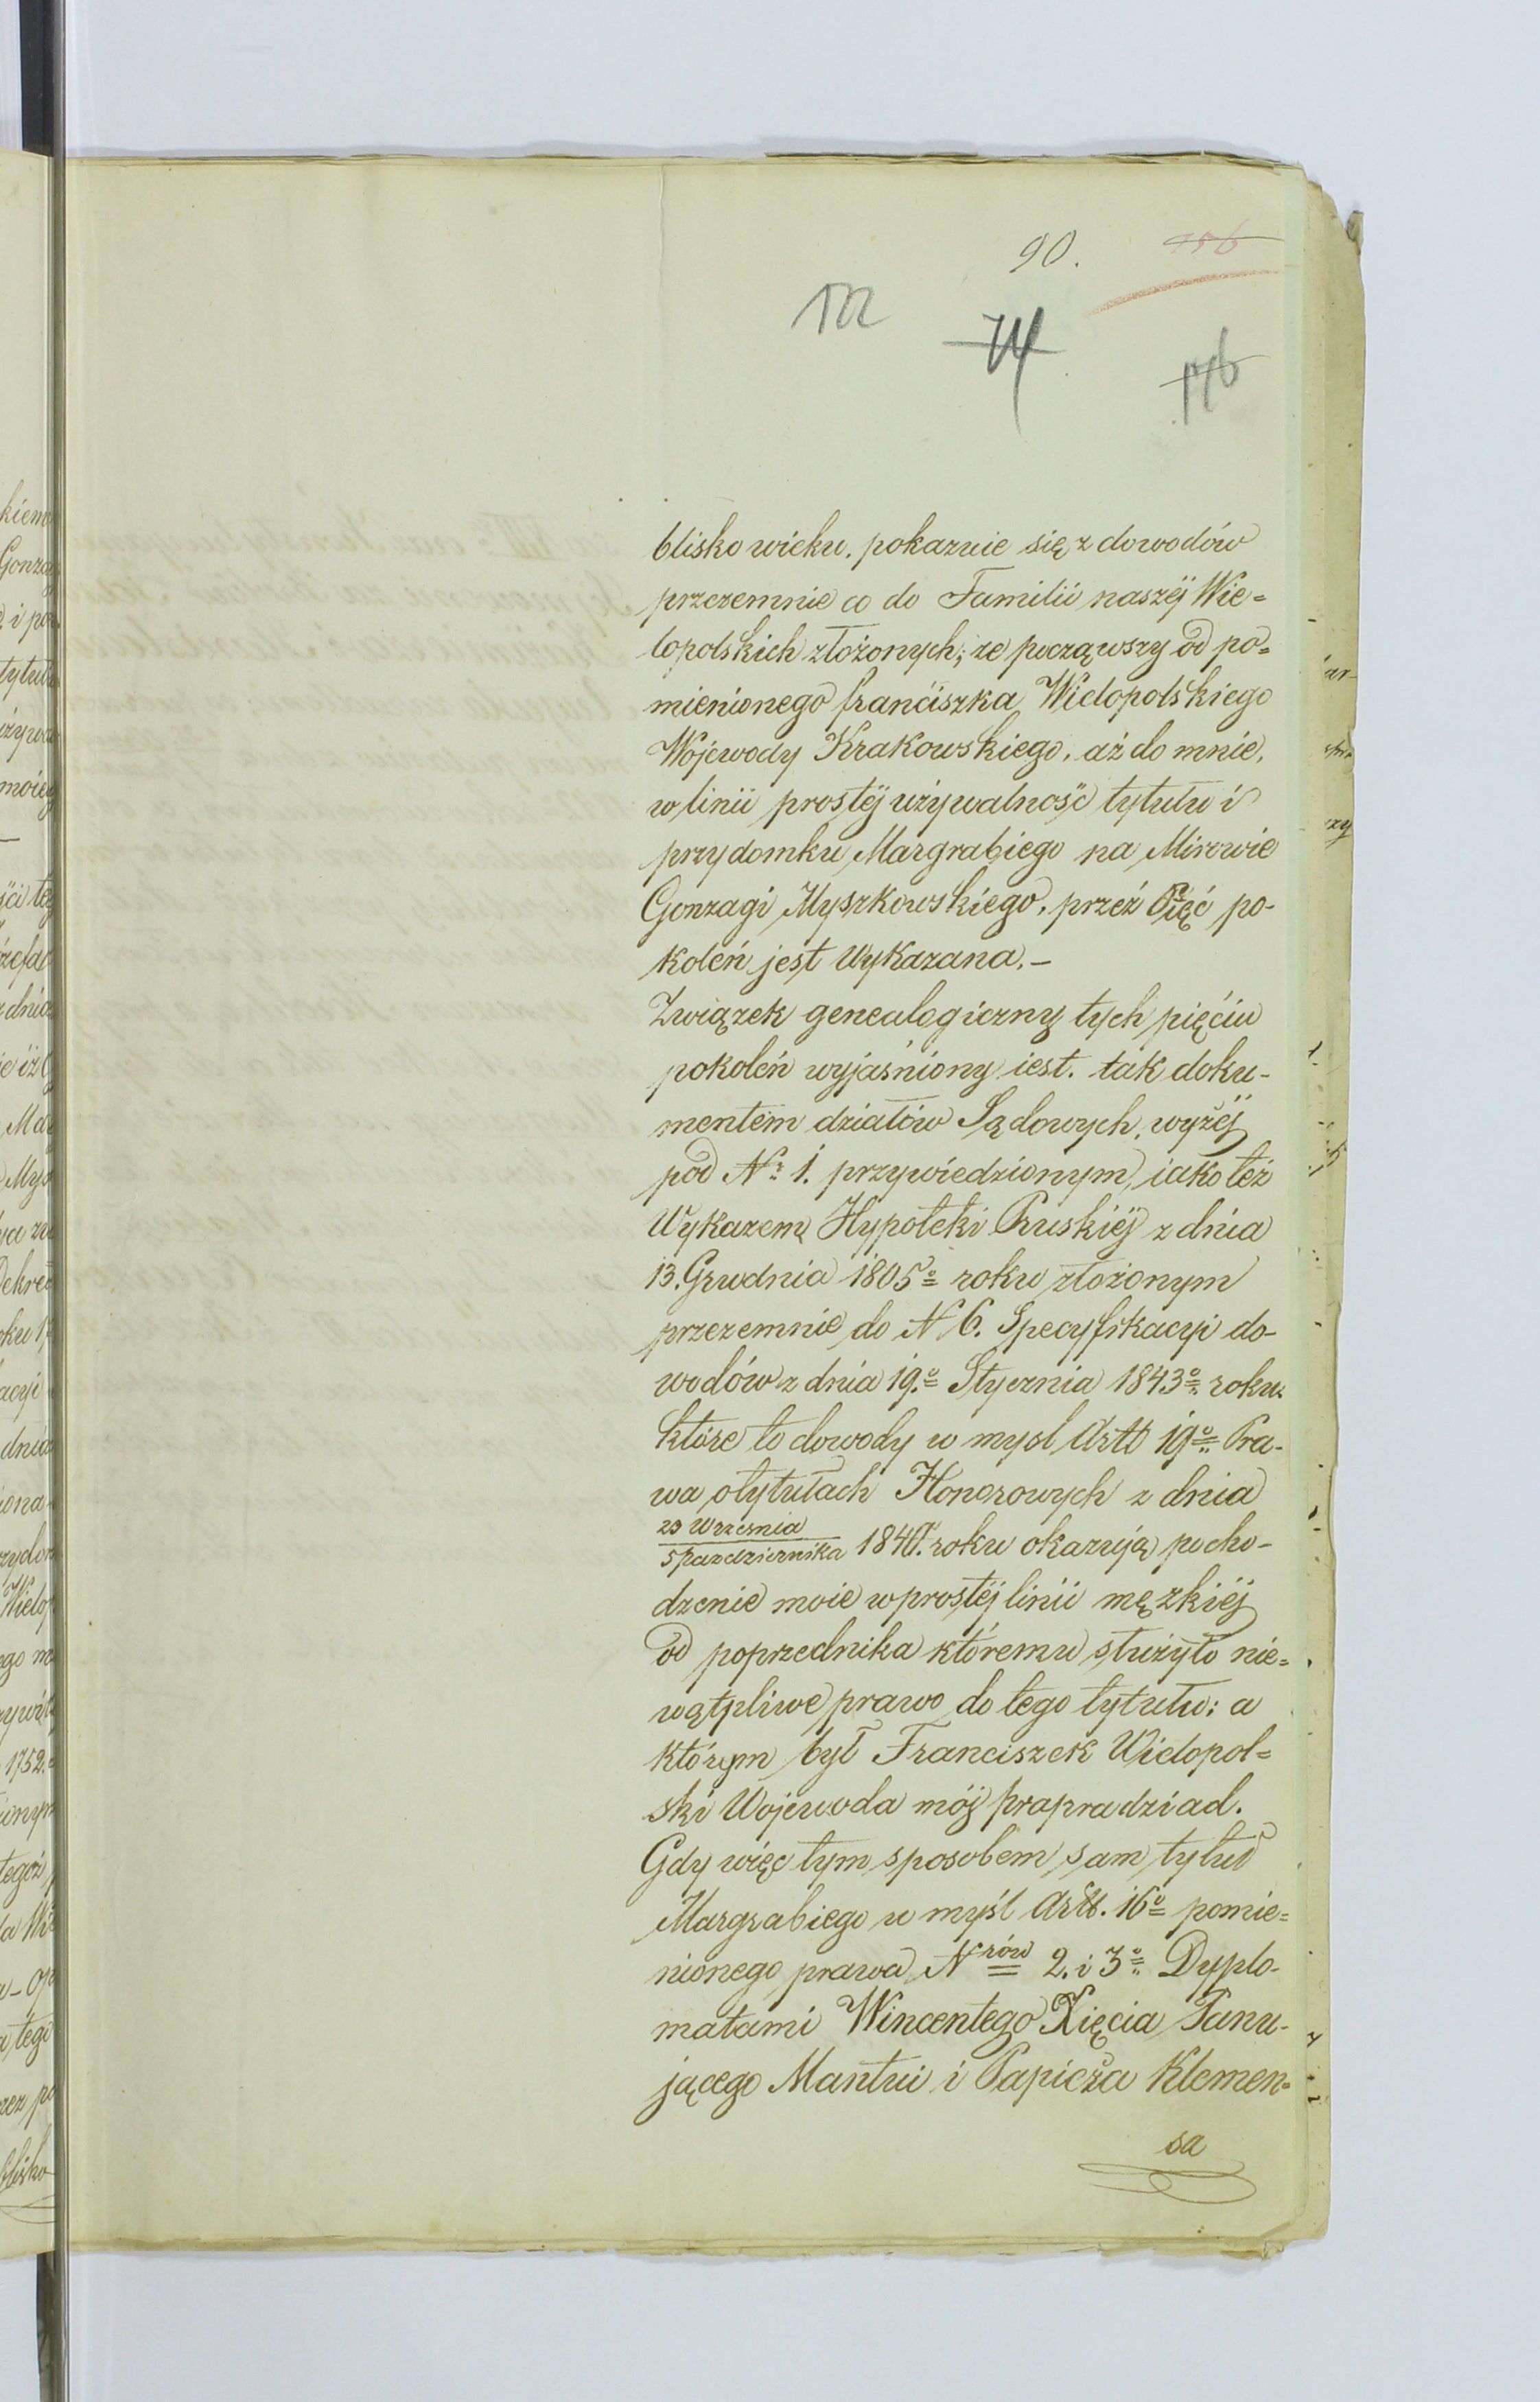 90.
156
122
74
176
blisko wieku. pokazuie się z dowodów
przezemnie co do Familii naszéj Wie=
lopolskich złożonych; że począwszy od po=
mienionego franciszka Wielopolskiego
Wojewody Krakowskiego, aż do mnie,
w linii prostéj używalność tytułu i
przydomku Margrabiego na Mirowie
Gonzagi Myszkowskiego, przez Pięć po-
koleń jest Wykazana.—
Związek genealogiczny tych pięciu
pokoleń wyjaśniony iest. tak doku-
mentem działów Sądowych, wyżéj
pod Nr 1. przywiedzionym, iako też
Wykazem Hypoteki Pruskiéj z dnia
13. Grudnia 1805o roku złożonym
przezemnie do N 6. Specyfikacyi do-
wodów z dnia 19.o Stycznia 1843o roku.
które to dowody w mysl Artt 19o Pra-
wa otytułach Honorowych z dnia
23 Wrzesnia
5 Pazdziernika 1840. roku okazują pocho-
dzenie moie w prostéj linii męzkiéj
od poprzednika któremu służyło nie=
wątpliwe prawo do tego tytułu; a
którym był Franciszek Wielopol=
ski Wojewoda mój prapradziad.
Gdy więc tym sposobem sam tytuł
Margrabiego w myśl Artt. 16o pomie=
nionego prawa Nrów 2. i 3o Dyplo-
matami Wincentego Xięcia Panu-
jącego Mantui i Papieża Klemen=
sa